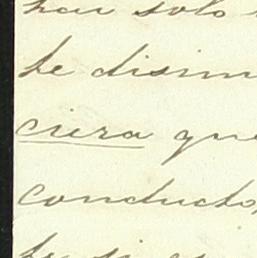 han solo
he disim
ciera que
conducto,